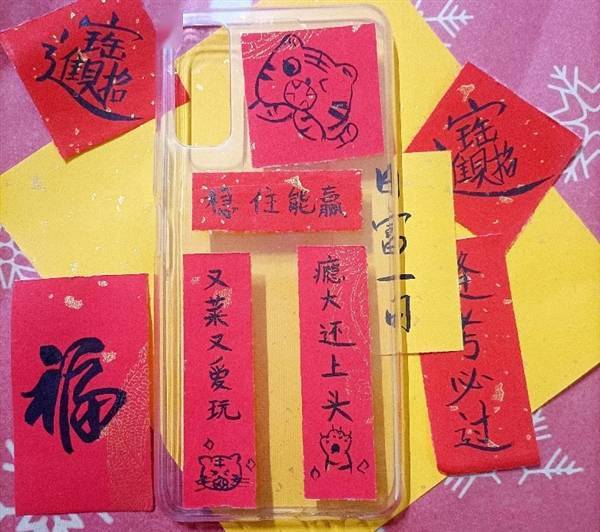 招财进宝
招财进宝
稳住能赢
又菜又爱玩
瘾大还上头
日富一日
逢考必过
福